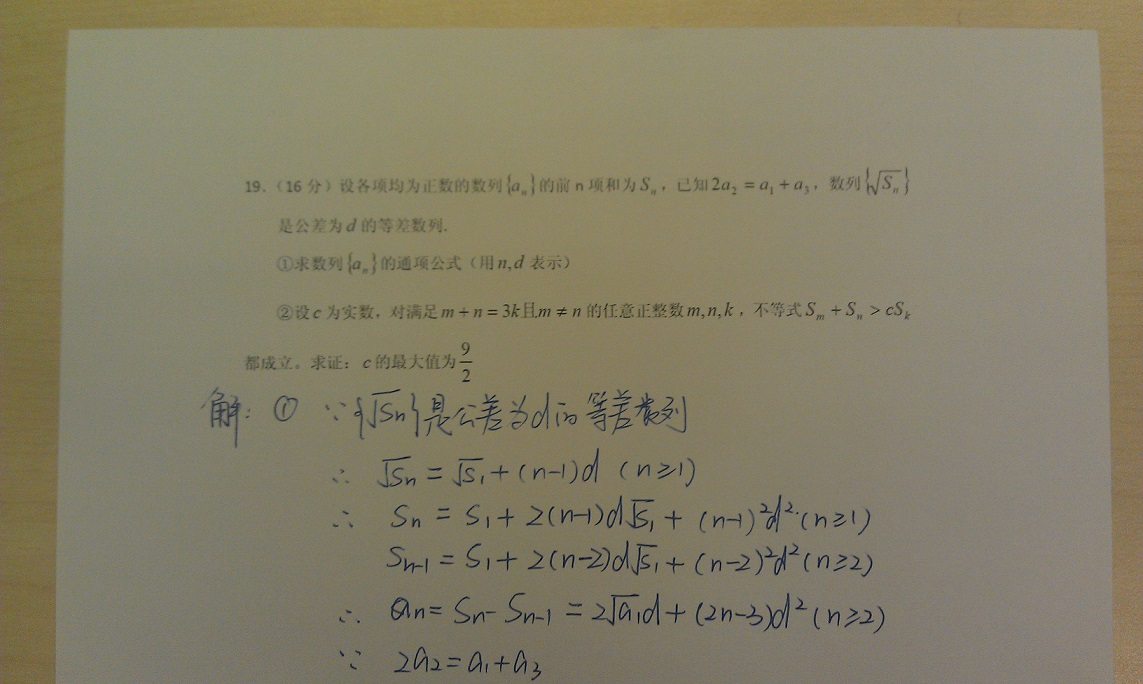 19、（16 分）设各项均为正数的数列{aₙ}的前 n 项和为 Sₙ，已知 2a₂ = a₁ + a₃，数列{√Sₙ}
是公差为 d 的等差数列.
①求数列{aₙ}的通项公式（用 n,d 表示）
②设 c 为实数，对满足 m + n = 3k且m ≠ n 的任意正整数 m,n,k，不等式 Sₘ + Sₙ > cSₖ
都成立。求证：c 的最大值为 9/2
解：① ∵{√Sₙ}是公差为d的等差数列
∴ √Sₙ = √S₁ + (n-1)d (n≥1)
∴ Sₙ = S₁ + 2(n-1)d√S₁ + (n-1)²d² (n≥1)
Sₙ₋₁ = S₁ + 2(n-2)d√S₁ + (n-2)²d² (n≥2)
∴ aₙ = Sₙ - Sₙ₋₁ = 2√a₁d + (2n-3)d² (n≥2)
∵ 2a₂ = a₁ + a₃